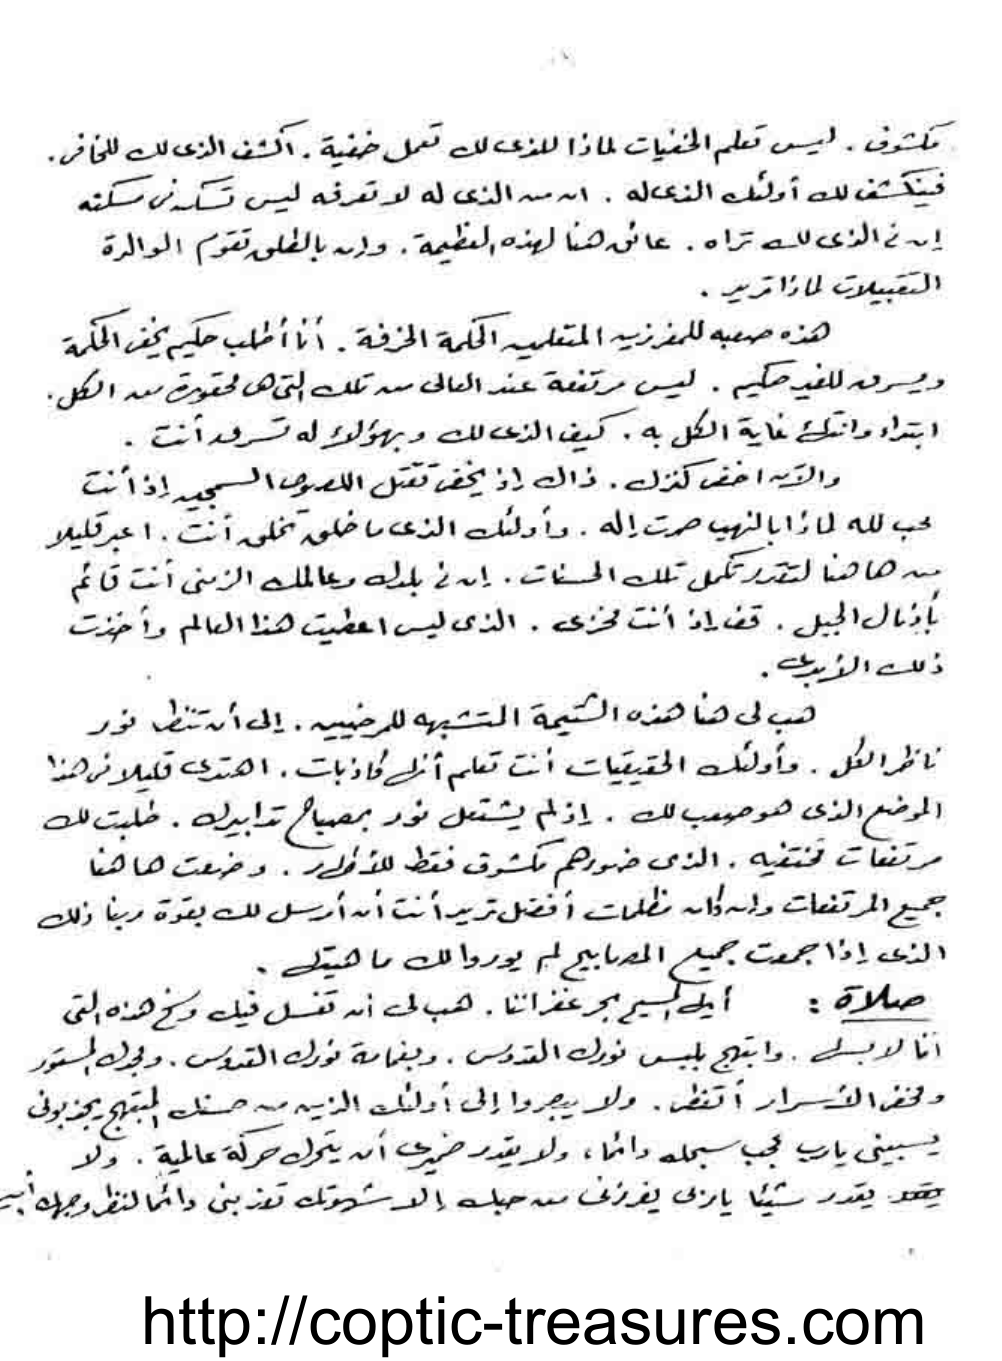 مكشوف . ليس تعلم الخفيات لماذا للذى لك تعمل خفية . اكشف الذى لك للخافى .
فينكشف لك أولئك الذى له . ان من الذى له لا تعرفه ليس تسكن فى مسكنه
إن فى الذى لك تراه . عائق هنا لهذه العظيمة . وإن بالطلق تقوم الوالدة
التقبيلات لماذا تريد .
هذه صعبه للمفرزين المتعلمين الحكمة الخرفة . أنا أطلب حكيم يخفى الحكمة
ويسرق للغير حكيم . ليس مرتفعة عند العالى من تلك التى هى محقورة من الكل .
ابتداء وانتهاء غاية الكل به . كيف الذى لك وبهؤلاء له تسرق أنت .
والآن اخف كنزك . ذاك إذ يخفى تقتل اللصوص السمجين إذ أنت
محب لله لماذا بالنهب صرت إله . وأولئك الذى ما خلق تخلق أنت . اعبر قليلا
من هاهنا لتقدر تكمل تلك الحسنات . إن فى بلدك وعالمك الزمنى أنت قائم
بأذيال الجبل . قف إذ أنت مخزى . الذى ليس اعطيت هذا العالم وأخذت
ذلك الأبدى .
هب لى هنا هذه الشتيمة المتشبهه للمرضيين . إلى أن تنظر نور
ناظر الكل . وأولئك الحقيقيات أنت تعلم أنها كاذبات . اهتدى قليلا فى هذا
الموضع الذى هو صعب لك . إذ لم يشتعل نور بمصباح تدابيرك . طلبت لك
مرتفعات مختفيه . الذى ضورهم مكشوق فقط للأطهار . وضعت هاهنا
جميع المرتفعات وإن كان مظلمات أفضل تريد أنت أن أرسل لك بقوة ربنا ذلك
الذى إذا جمعت جميع المصابيح لم يوروا لك ماهيته .
صلاة : أيها المسيح بحر غفراننا . هب لى أن تغسل فيك وسخ هذه التى
أنا لابسها . وابتهج بلبس نورك القدوس . وبغمامة نورك القدوس . ومجدك المستور
ومخفى الأسرار أتغطى . ولا يبصروا إلى أولئك الذين من حسنك المبتهج يجذبونى
يسبينى يارب عجب سبحك دائما ، ولا يقدر ضميرى أن يتحرك حركة عالمية . ولا
يقدر شيئا يا ربى يفرزنى من حبك إلا شهوتك تعذبنى دائما لنظر وجهك
http://coptic-treasures.com